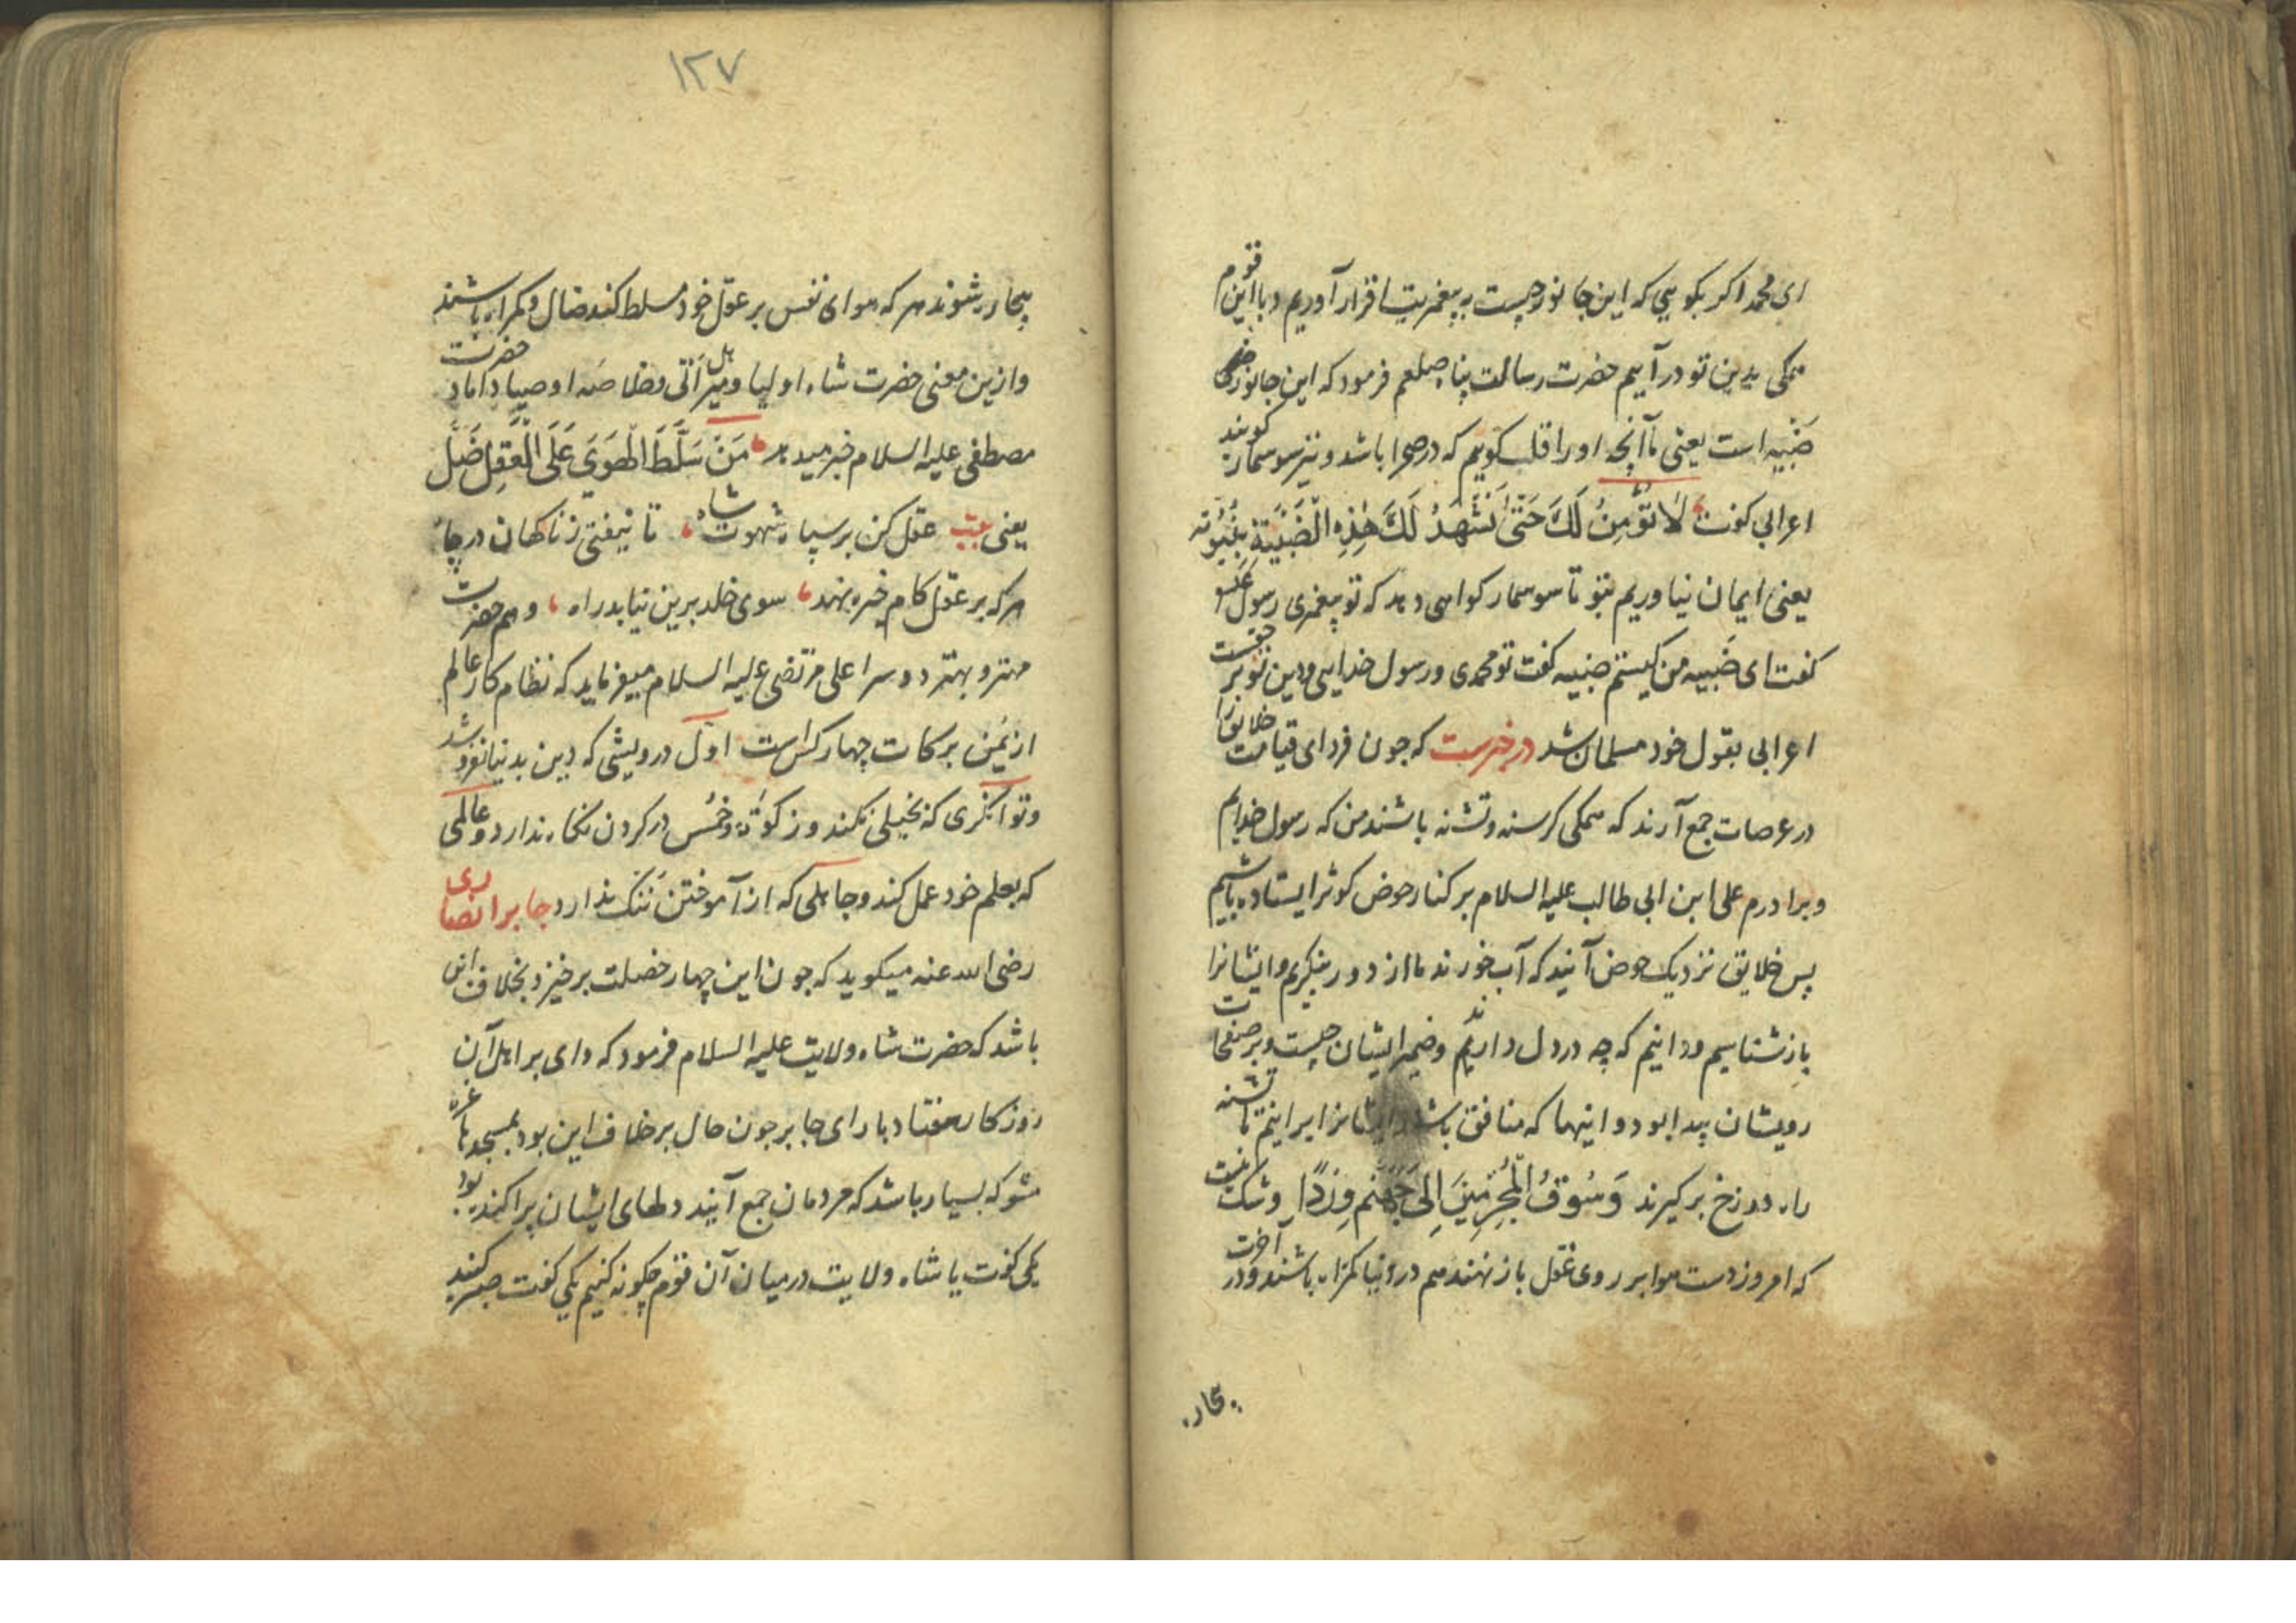 ای محمد اکر بکویی که این جانور چیست به پیغمبریت اقرار آوریم و با این قوم
همکی بدین تو درآییم حضرت رسالت پناه صلعم فرمود که این جانور
ضَبّیه است یعنی ماآنچه او را قلب کویم که در صحرا باشد و نیز سوسمار کویند
اعرابی کفت لَا نُؤْمِنُ لَكَ حَتّیٰ تَشْهَدُ لَكَ هٰذِهِ الْضَّبِّیَةِ بِنُبُوَّته
یعنی ایمان نیاوریم بتو تا سوسمار کواهی دهد که تو پیغمبری رسول
کفت ای ضَبیه من کیستم ضبیه کفت تو محمدی و رسول خدایی و دین تو بر حقست
اعرابی بقول خود مسلمان شد در خبرست که چون فردای قیامت خلایق را
در عرصات جمع آرند که همکی کرسنه و تشنه باشند من که رسول خدایم
و برادرم علی ابن ابی طالب علیه السلام بر کنار حوض کوثر ایستاده باشیم
پس خلایق نزدیک حوض آیند که آب خورند ما از دور بنکریم و ایشانرا
بازشناسیم و دانیم که چه در دل دارند و ضمیر ایشان چیست و بر صفحات
رویشان پیدا بود و اینها که منافق باشند ایشانرا برانیم تا تشنه
راه دوزخ برکیرند وَسُوقُ الْمُجْرِمِینَ اِلیٰ جَهَنَّم وِرْدًا وشک نیست
که امروز دست هوا بر روی عقل باز نهند هم در دنیا کمراه باشند و در آخرت
بیچاره
١٢٧
بیچاره شوند هر که هوای نفس بر عقل خود مسلط کند ضال و کمراه باشند
وازین معنی حضرت شاه اولیا و میر هل اَتی و خلاصه اوصیا داماد حضرت
مصطفی علیه السلام خبر میدهد مَنْ سَلَّطَ الْهَوَیٰ عَلَی الْعَقِلِ ضَلَّ
یعنی بیت عقل کن بر سپاه شهوت شاه تا نیفتی ز ناکهان در چاه
هر که بر عقل کام خیره نهد سوی خلد برین نیابد راه وهم حضرت
مهتر و بهتر دو سرا علی مرتضی علیه السلام میفرماید که نظام کار عالم
از یُمن برکات چهار کس است اول درویشی که دین بدنیا نفروشد
وتوانکری که بخیلی نکند و زکوٰة وخُمس در کردن نکاه ندارد وعالمی
که بعلم خود عمل کند و جاهلی که از آموختن ننک ندارد جابر انصاری
رضی الله عنه میکوید که چون این چهار خصلت برخیزد بخلاف این
باشد که حضرت شاه ولایت علیه السلام فرمود که وای بر اهل آن
روزکار هفتاد بار ای جابر چون حال بر خلاف این بود بمسجدها غره
مشو که بسیار باشد که مردمان جمع آیند دلهای ایشان پراکنده بود
یکی کفت یا شاه ولایت در میان آن قوم چکونه کنیم یکی کفت صبر کنید